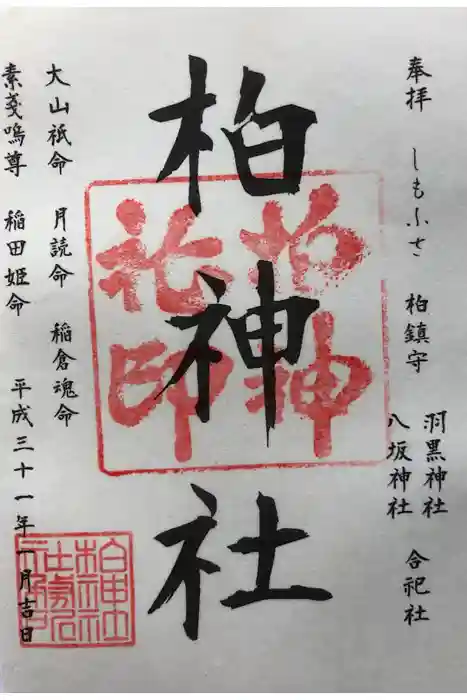 奉拝 しもふさ 柏鎮守
羽黒神社
八坂神社
合祀社
柏神社
柏神社印
大山祇命 月読命 稲倉魂命
素戔嗚尊 稲田姫命
平成三十一年一月吉日